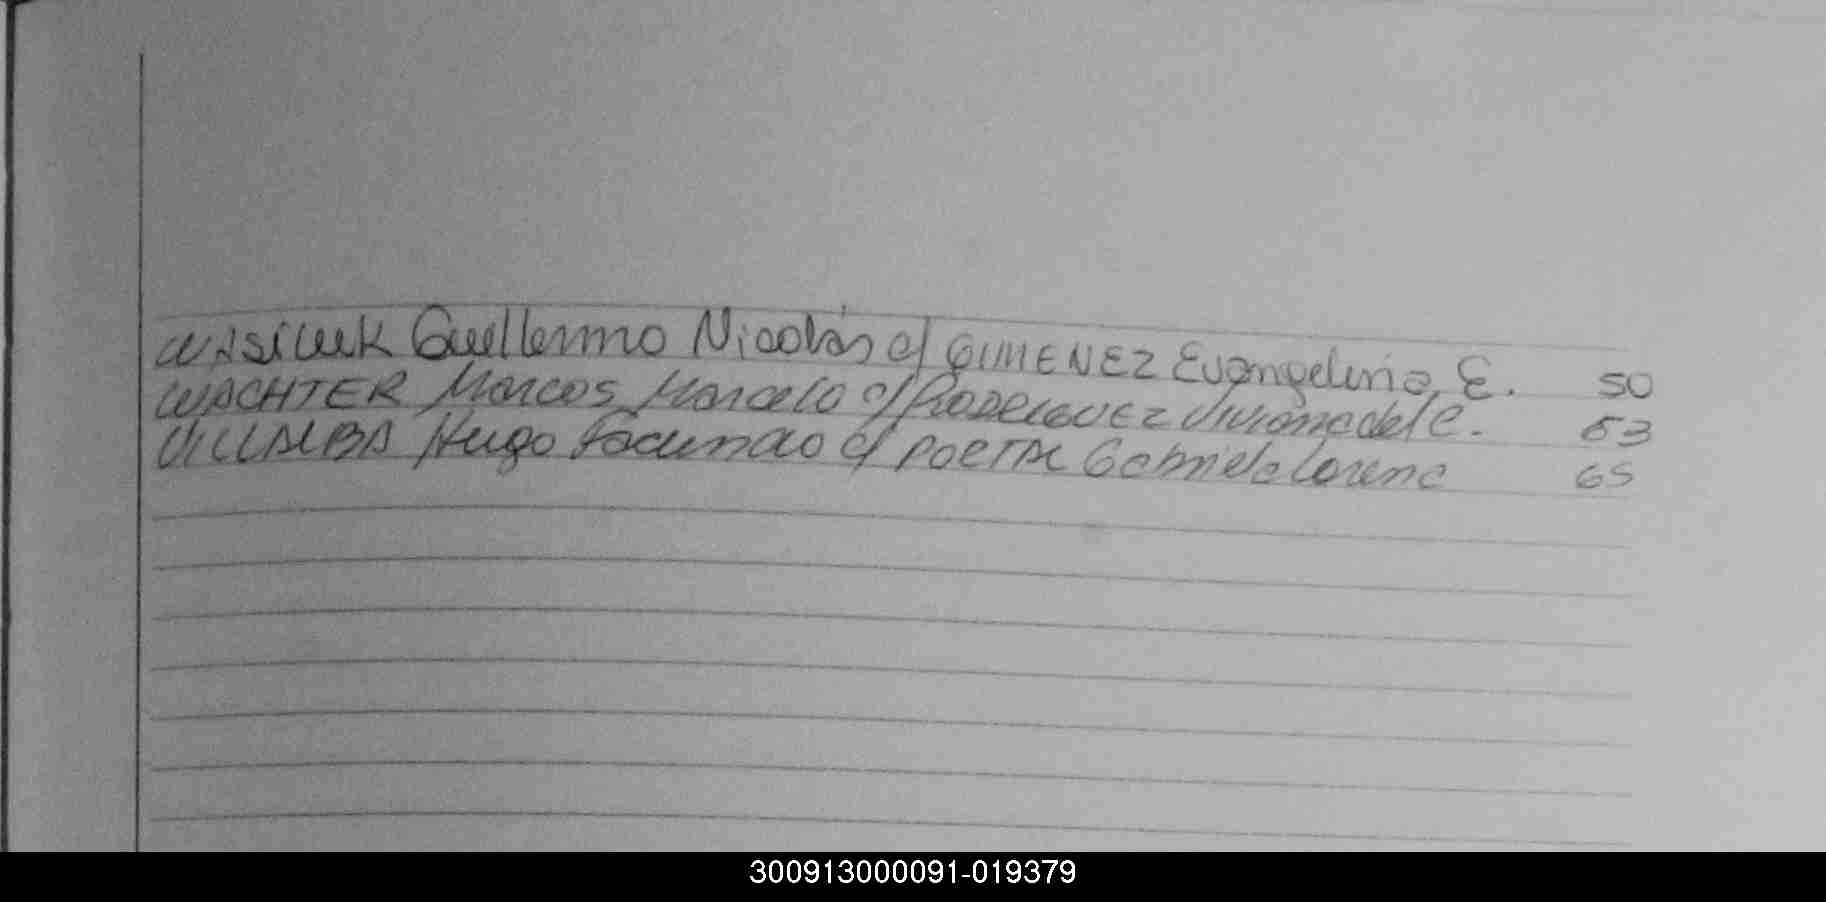 WASiLuK Guillermo Nicolás c/ GIMENEZ Evangelina E. 50
WACHTER Marcos Marcelo c/ RODRIGUEZ Viviana del C. 53
VILLALBA Hugo Facundo c/ PORTAL Gabriela Lorena 65
300913000091-019379